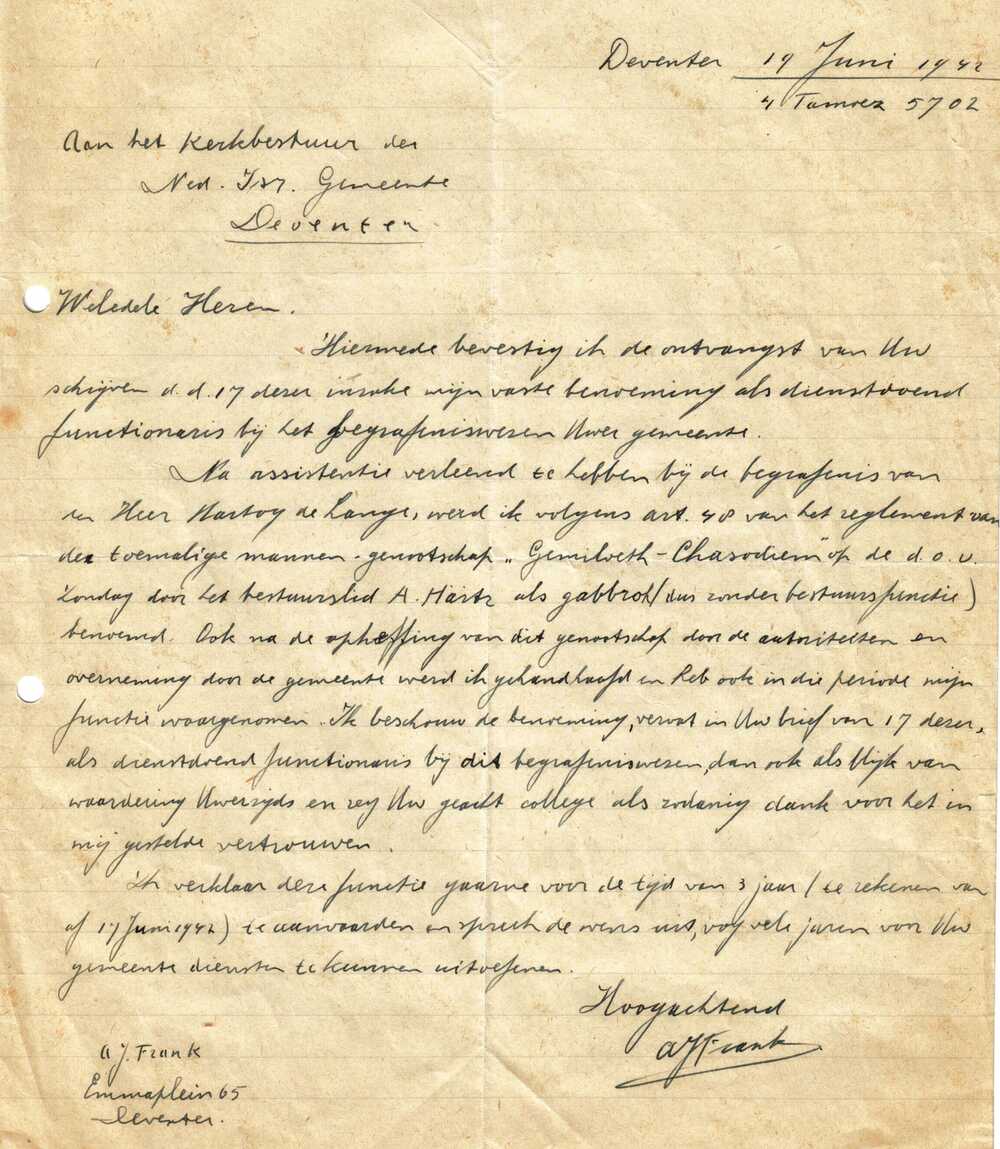 Deventer 19 Juni 1942
4 Tamoez 5702
Aan het Kerkbestuur der
Ned. Isr. Gemeente
Deventer.
Weledele Heren.
Hiermede bevestig ik de ontvangst van Uw
schrijven d.d. 17 dezer inzake mijn vaste benoeming als dienstdoend
functionaris bij het begrafeniswezen Uwer gemeente.
Na assistentie verleend te hebben bij de begrafenis van
den Heer Hartog de Lange, werd ik volgens art. 48 van het reglement van
de toenmalige mannen-genootschap „Gemiloeth-Chasodiem" op de d.o.v.
Zondag door het bestuurslid A. Hartz als gabbroh (dus zonder bestuursfunctie)
benoemd. Ook na de opheffing van dit genootschap door de autoriteiten en
overneming door de gemeente werd ik gehandhaafd en heb ook in die periode mijn
functie waargenomen. Ik beschouw de benoeming, vervat in Uw brief van 17 dezer,
als dienstdoend functionaris bij dit begrafeniswezen, dan ook als blijk van
waardering Uwerzijds en zeg Uw geacht college als zodanig dank voor het in
mij gestelde vertrouwen.
Ik verklaar deze functie gaarne voor de tijd van 3 jaar (te rekenen van
af 17 Juni 1942) te aanvaarden en spreek de wens uit, nog vele jaren voor Uw
gemeente diensten te kunnen uitoefenen.
Hoogachtend
AJFrank
A J. Frank
Emmaplein 65
Deventer.